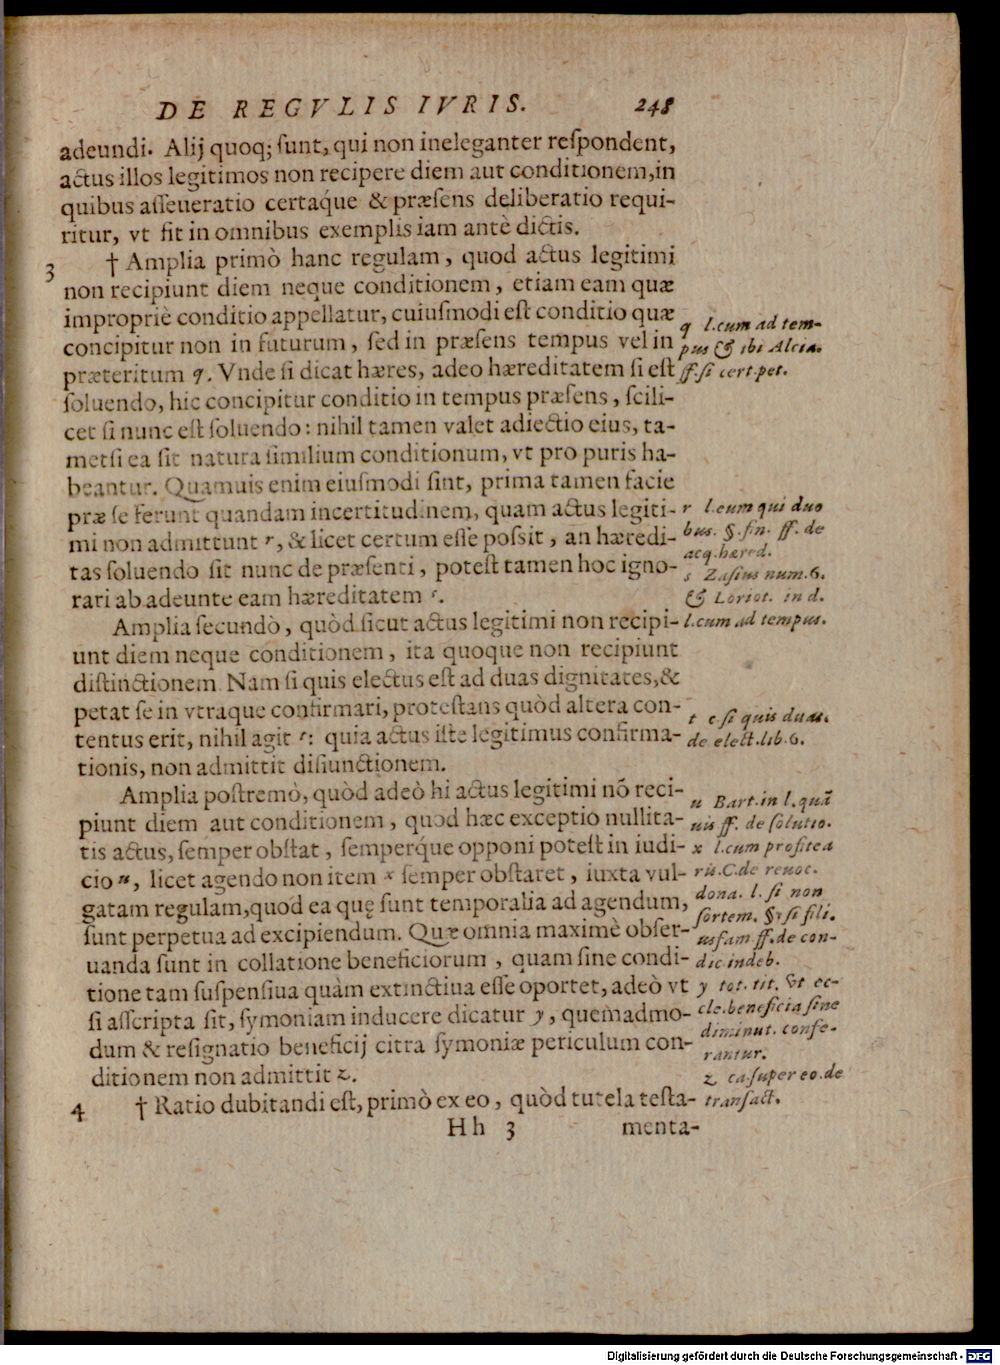 DE REGVLIS IVRIS. 248
adeundi. Alij quoq; ſunt, qui non ineleganter reſpondent,
actus illos legitimos non recipere diem aut conditionem, in
quibus aſſeueratio certaq́ue & præſens deliberatio requi-
ritur, vt fit in omnibus exemplis iam antè dictis.
3 † Amplia primò hanc regulam, quod actus legitimi
non recipiunt diem neque conditionem, etiam eam quæ
impropriè conditio appellatur, cuiuſmodi eſt conditio quæ
concipitur non in futurum, ſed in præſens tempus vel in
præteritum q. Vnde ſi dicat hæres, adeo hæreditatem ſi eſt
ſoluendo, hic concipitur conditio in tempus præſens, ſcili-
cet ſi nunc eſt ſoluendo: nihil tamen valet adiectio eius, ta-
metſi ea ſit natura ſimilium conditionum, vt pro puris ha-
beantur. Quamuis enim eiuſmodi ſint, prima tamen facie
præ ſe ferunt quandam incertitudinem, quam actus legiti-
mi non admittunt r, & licet certum eſſe poſsit, an hæredi-
tas ſoluendo ſit nunc de præſenti, poteſt tamen hoc igno-
rari ab adeunte eam hæreditatem ſ.
Amplia ſecundò, quòd ſicut actus legitimi non recipi-
unt diem neque conditionem, ita quoque non recipiunt
diſtinctionem. Nam ſi quis electus eſt ad duas dignitates, &
petat ſe in vtraque confirmari, proteſtans quòd altera con-
tentus erit, nihil agit t: quia actus iſte legitimus confirma-
tionis, non admittit diſiunctionem.
Amplia poſtremò, quòd adeò hi actus legitimi nõ reci-
piunt diem aut conditionem, quod hæc exceptio nullita-
tis actus, ſemper obſtat, ſemperq́ue opponi poteſt in iudi-
cio u, licet agendo non item x ſemper obſtaret, iuxta vul-
gatam regulam, quod ea quę ſunt temporalia ad agendum,
ſunt perpetua ad excipiendum. Quæ omnia maximè obſer-
uanda ſunt in collatione beneficiorum, quam ſine condi-
tione tam ſuſpenſiua quàm extinctiua eſſe oportet, adeò vt
ſi aſſcripta ſit, ſymoniam inducere dicatur y, quemadmo-
dum & reſignatio beneficij citra ſymoniæ periculum con-
ditionem non admittit z.
4 † Ratio dubitandi eſt, primò ex eo, quòd tutela teſta-
Hh 3 menta-
q l. cum ad tem-
pus & ibi Alcia.
ff. ſi cert. pet.
r l. eum qui duo
bus. §. fin. ff. de
acq. hæred.
s Zaſius num. 6.
& Loriot. in d.
l. cum ad tempus.
t c. ſi quis duas.
de elect. lib. 6.
u Bart. in l. quã
uis ff. de ſolutio.
x l. cum profitea
ris. C. de reuoc.
dona. l. ſi non
ſortem. §. ſi fili-
usfam ff. de con-
dic. indeb.
y tot. tit. vt ec-
cle. beneficia ſine
diminut. confe-
rantur.
z ca. ſuper eo. de
tranſact.
Digitalisierung gefördert durch die Deutsche Forschungsgemeinschaft - DFG